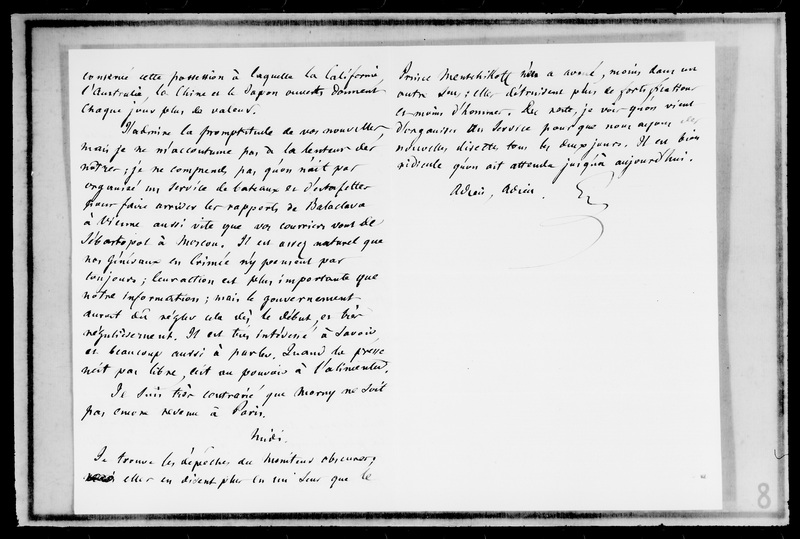 conservé cette possession à laquelle la Californie,
l'Australie la Chine et le Japon ouverts donnent
chaque jour plus de valeur.
J'admire la promptitude de vos nouvelles
mais je ne m'accoutume pas à la lenteur des
nôtres ; je ne comprends pas qu'on n'ait pas
organisé un service de bateaux et d'estafettes
pour faire arriver les rapports de Balaclava
à Vienne aussi vite que vos courriers vont de
Sébastopol à Moscou. Il est assez naturel que
nos généraux en Crimée n'y pensent pas
toujours ; leur action est plus importante que
notre information ; mais le gouvernement
auroit dû régler cela dès le début, et très
régulièrement. Il est très intéressé à savoir,
et beaucoup aussi à parler. Quand la presse
n'est pas libre, c'est au pouvoir à l'alimenter.
Je suis très contrarié que Morny ne soit
pas encore revenu à Paris.
Midi.
Je trouve les dépêches du Moniteur obscures ;
elles en disent plus en un sens que le
Prince Mentschikoff n'en a avoué, moins dans un
autre sens ; elles détruisent plus de fortifications
et moins d'hommes. Du reste, je vois qu'on vient
d'organiser un service pour que nous ayons des
nouvelles directes tous les deux jours. Il est bien
ridicule qu'on ait attendu jusqu'à aujourd'hui.
Adieu, Adieu.
8